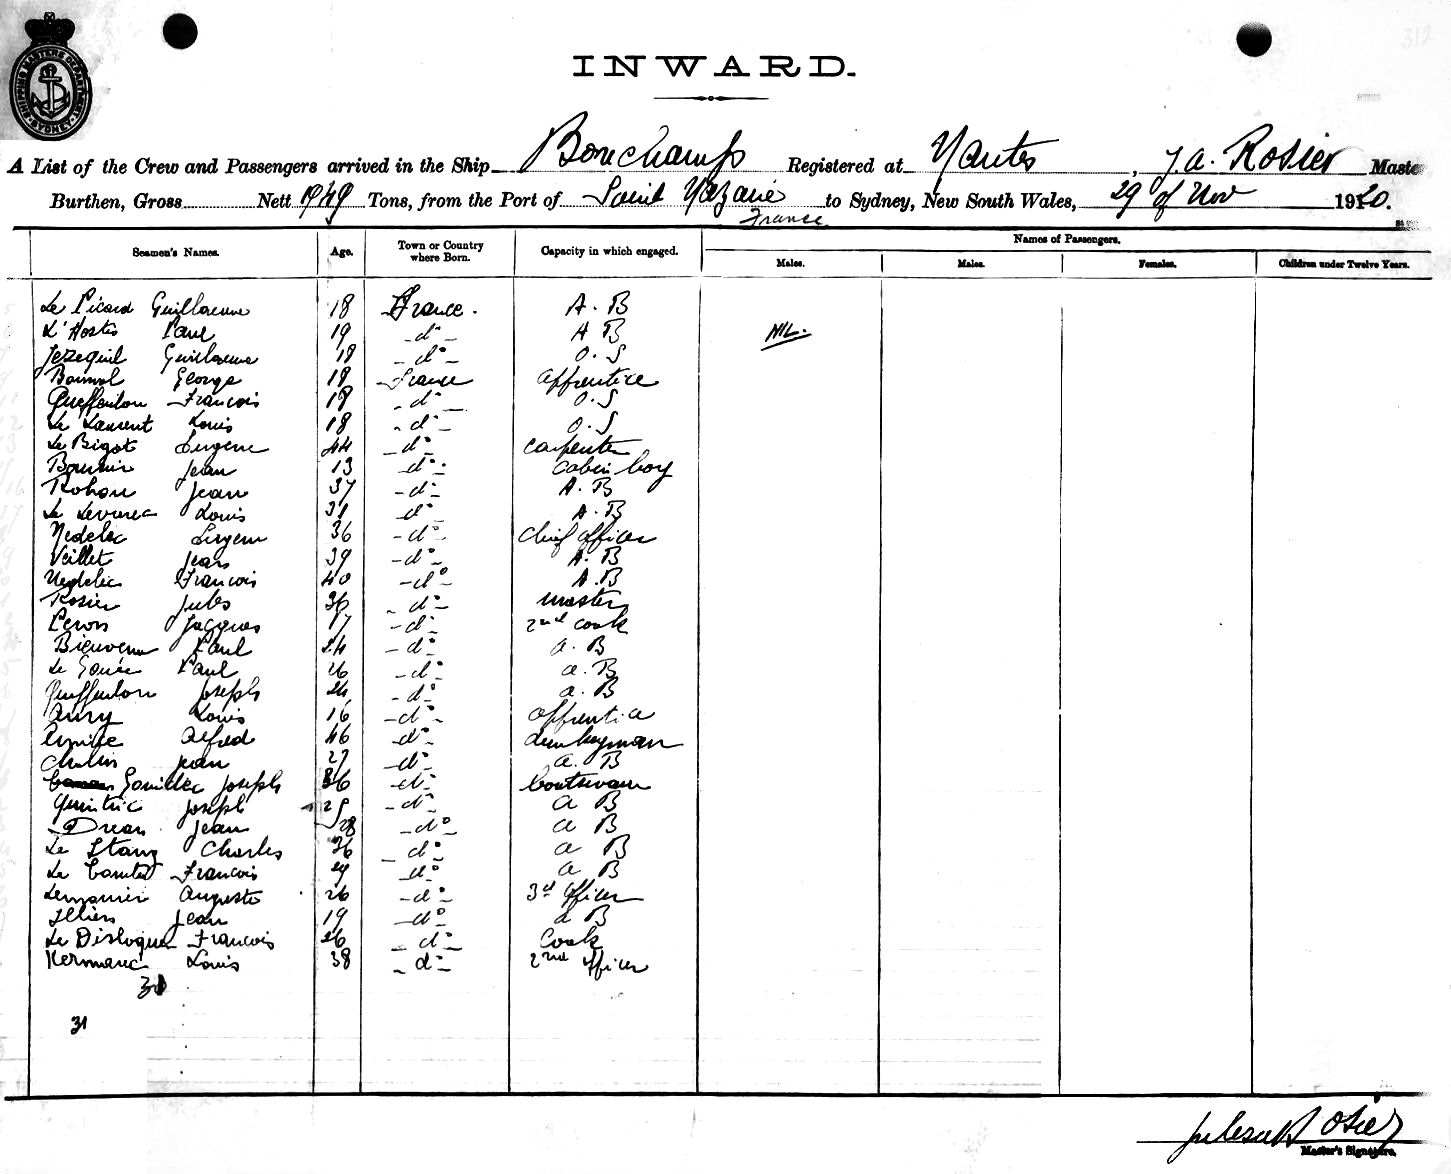 SHIPPING MASTERS DEPARTMENT
SYDNEY
312
INWARD.
A List of the Crew and Passengers arrived in the Ship Bonchamps Registered at Nantes, J. A. Rosier Master
Burthen, Gross Nett 1949 Tons, from the Port of Saint Nazaire to Sydney, New South Wales, 29 of Nov 1920.
France
Seamen's Names. Age. Town or Country where Born. Capacity in which engaged. Names of Passengers.
Males. Males. Females. Children under Twelve Years.
Le Picard Guillaume 18 France. A. B
L'Hostis Paul 19 -do- A B NIL.
Jezequil Guillaume 18 -do- O. S
Bonnal George 18 France apprentice
Queffeulou Francois 18 -do- O. S
Le Laurent Louis 18 -do- O. S
Le Bigot Eugene 44 -do- carpenter
Jean 13 -do- cabin boy
Rohou Jean 37 -do- A. B
Le Louis 31 do- A. B
Nedelec Eugene 36 -do- chief officer
Veillet Jean 39 -do- A. B
Nedelec Francois 40 -do- A. B
Rosier Jules 36 -do- master
Peron Jacques 17 -do- 2nd cook
Bienvenu Paul 24 -do- a. B
Le Gouée Paul 26 -do- a. B
Queffeulou Joseph 24 -do- a. B
Aury Louis 16 -do- apprentice
Alfred 46 -do- dunkeyman
Jean 27 -do- a. B
Gouillec Joseph 36 -do- boatswain
Quintric Joseph -do- a B
Drean Jean 28 -do- a B
Le Stang Charles 36 -do- a B
Le Francois 29 -do- a B
Lemonnier Auguste 26 -do- 3rd officer
Illien Jean 19 -do- a B
Le Disloquer Francois 26 -do- Cook
Kermanac Louis 38 -do- 2nd officer
31
31
Jules A Rosier
Master's Signature.